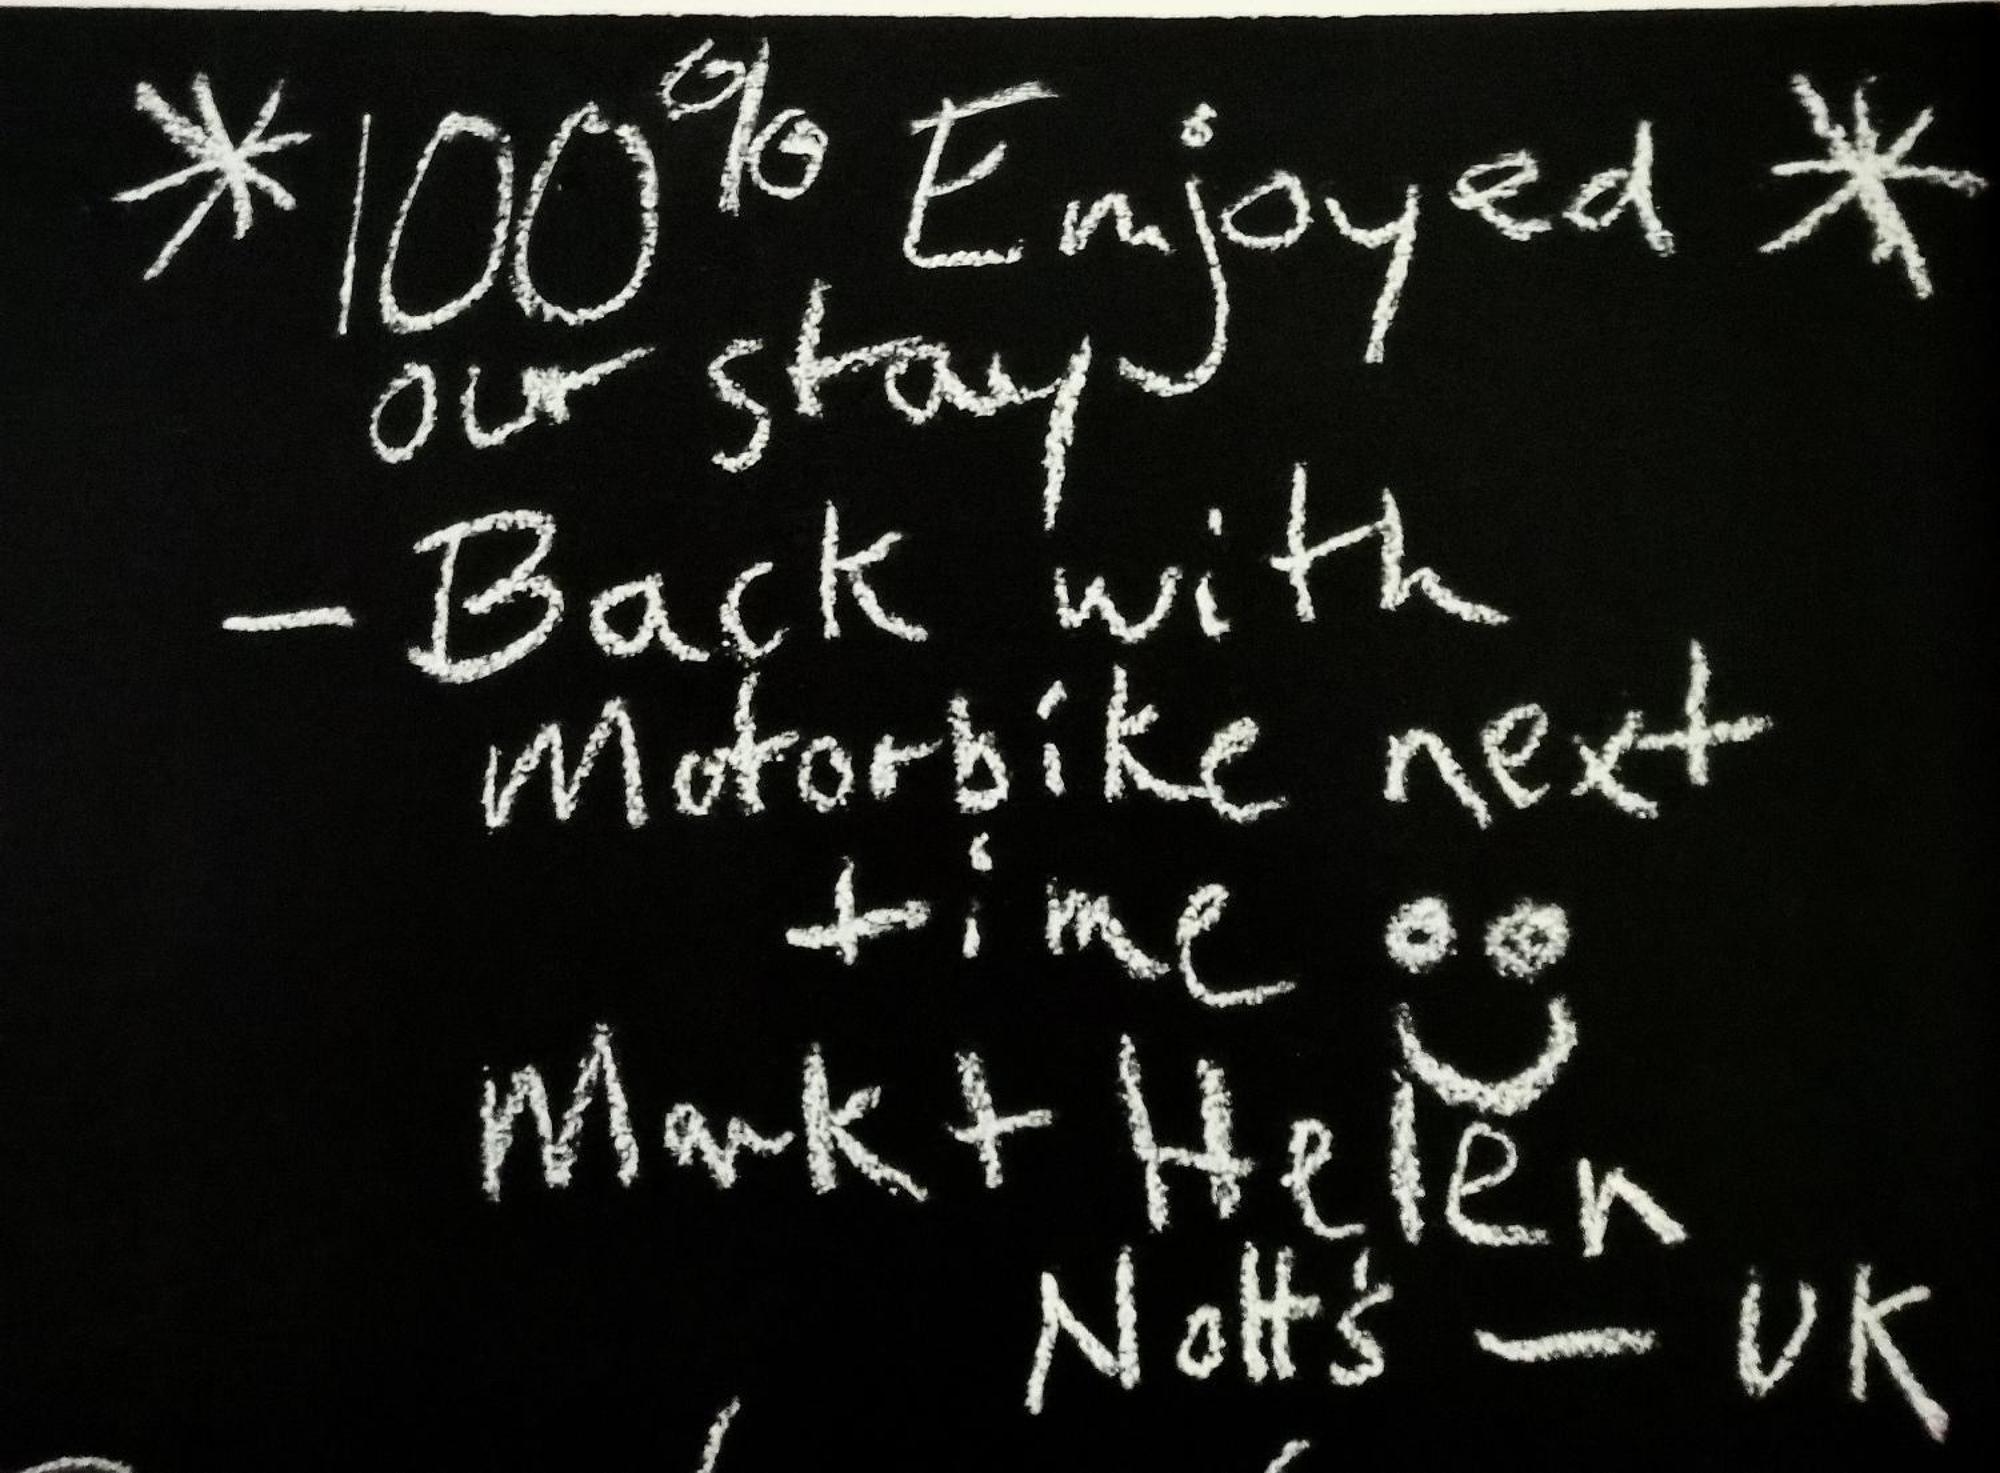 *100% Enjoyed*
our stay
- Back with
Motorbike next
time
Mark + Helen
Nott's - UK